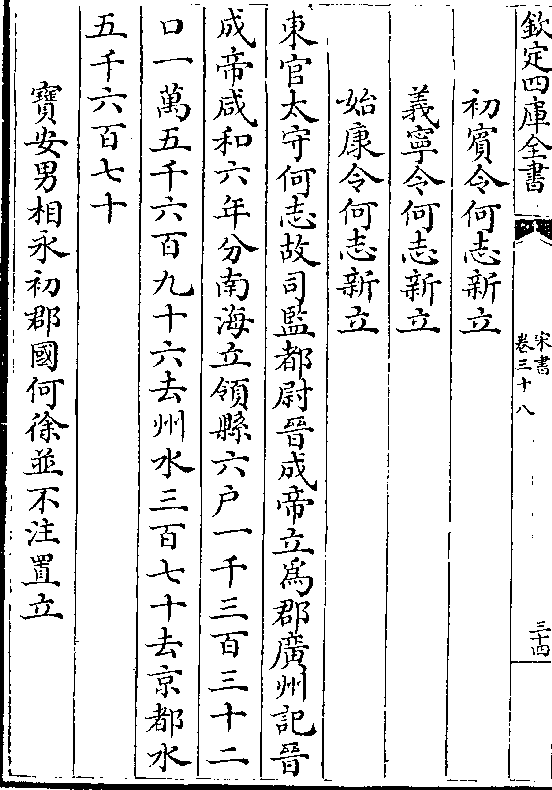 欽定四庫全書
宋書
卷三十八
三十四
初賓令何志新立
義寧令何志新立
始康令何志新立
東官太守何志故司監都尉晉成帝立為郡廣州記晉
成帝咸和六年分南海立領縣六户一千三百三十二
口一萬五千六百九十六去州水三百七十去京都水
五千六百七十
寶安男相永初郡國何徐並不注置立